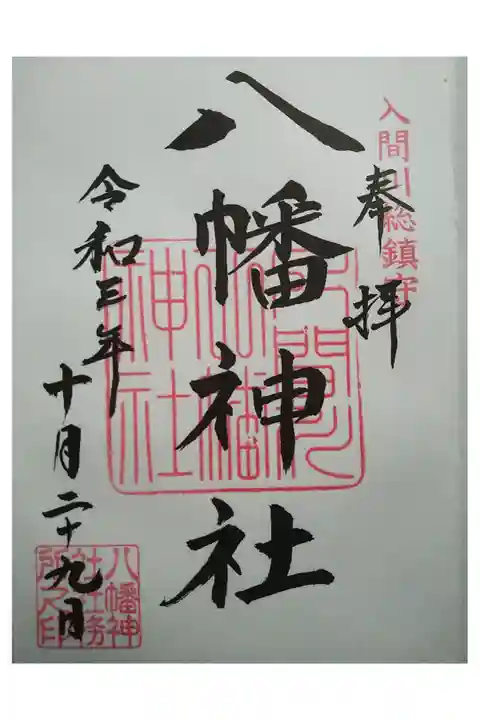 入間川総鎮守
奉拝
八幡神社
令和三年
十月二十九日
入間川
八幡
神社
八幡神
社社務
所之印